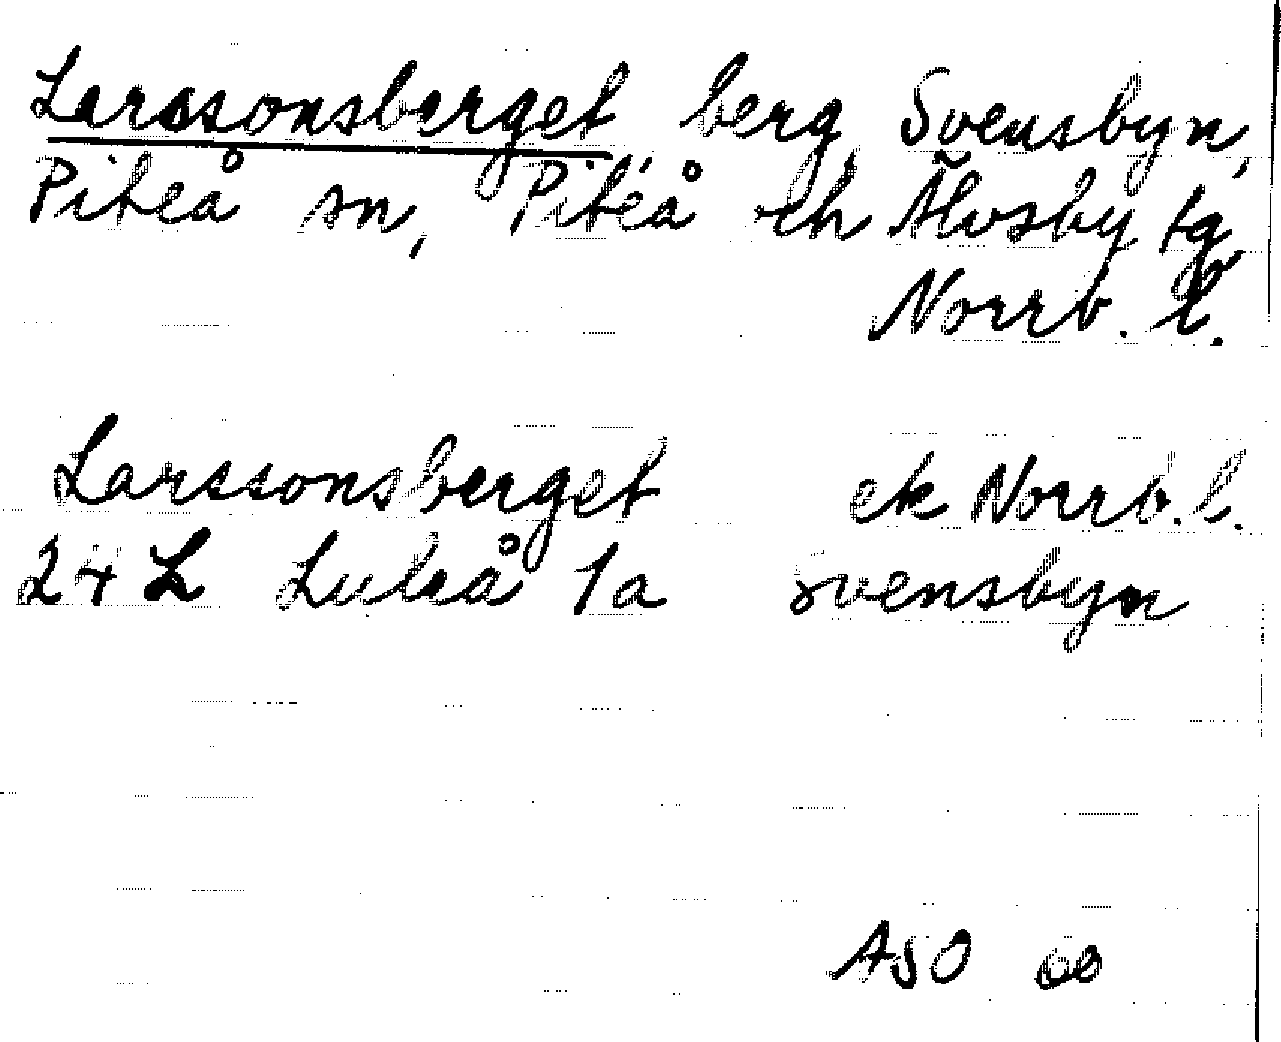 Larssonsberget, berg, Svensbyn,
Piteå sn, Piteå och Älvsby tg
Norrb. l.
Larssonsberget ek Norrb. l.
24 L Luleå 1a Svensbyn
ASO 60